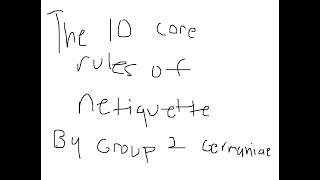 The 10 core
rules of
netiquette
By Group 2 Germaniae